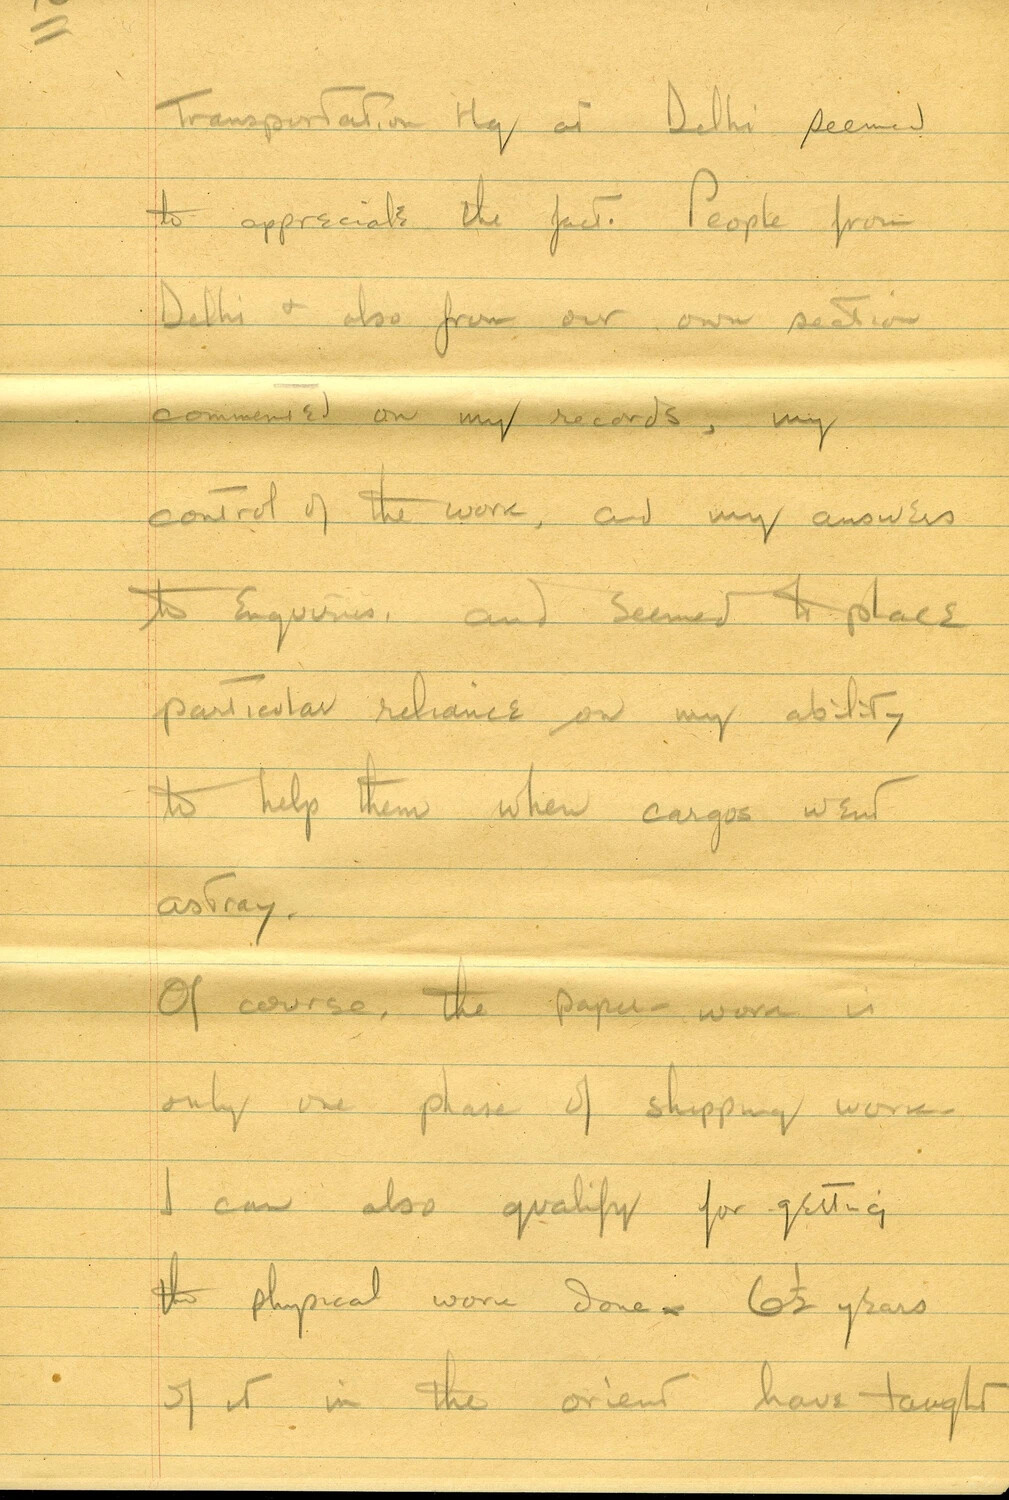 Transportation Hq at Delhi seemed
to appreciate the fact. People from
Delhi & also from our own section
commented on my records, my
control of the work, and my answers
to Enquiries. and seemed to place
particular reliance on my ability
to help them when cargos went
astray.
Of course, the paper-work is
only one phase of shipping work
I can also qualify for getting
the physical work done. 6½ years
of it in the orient have taught